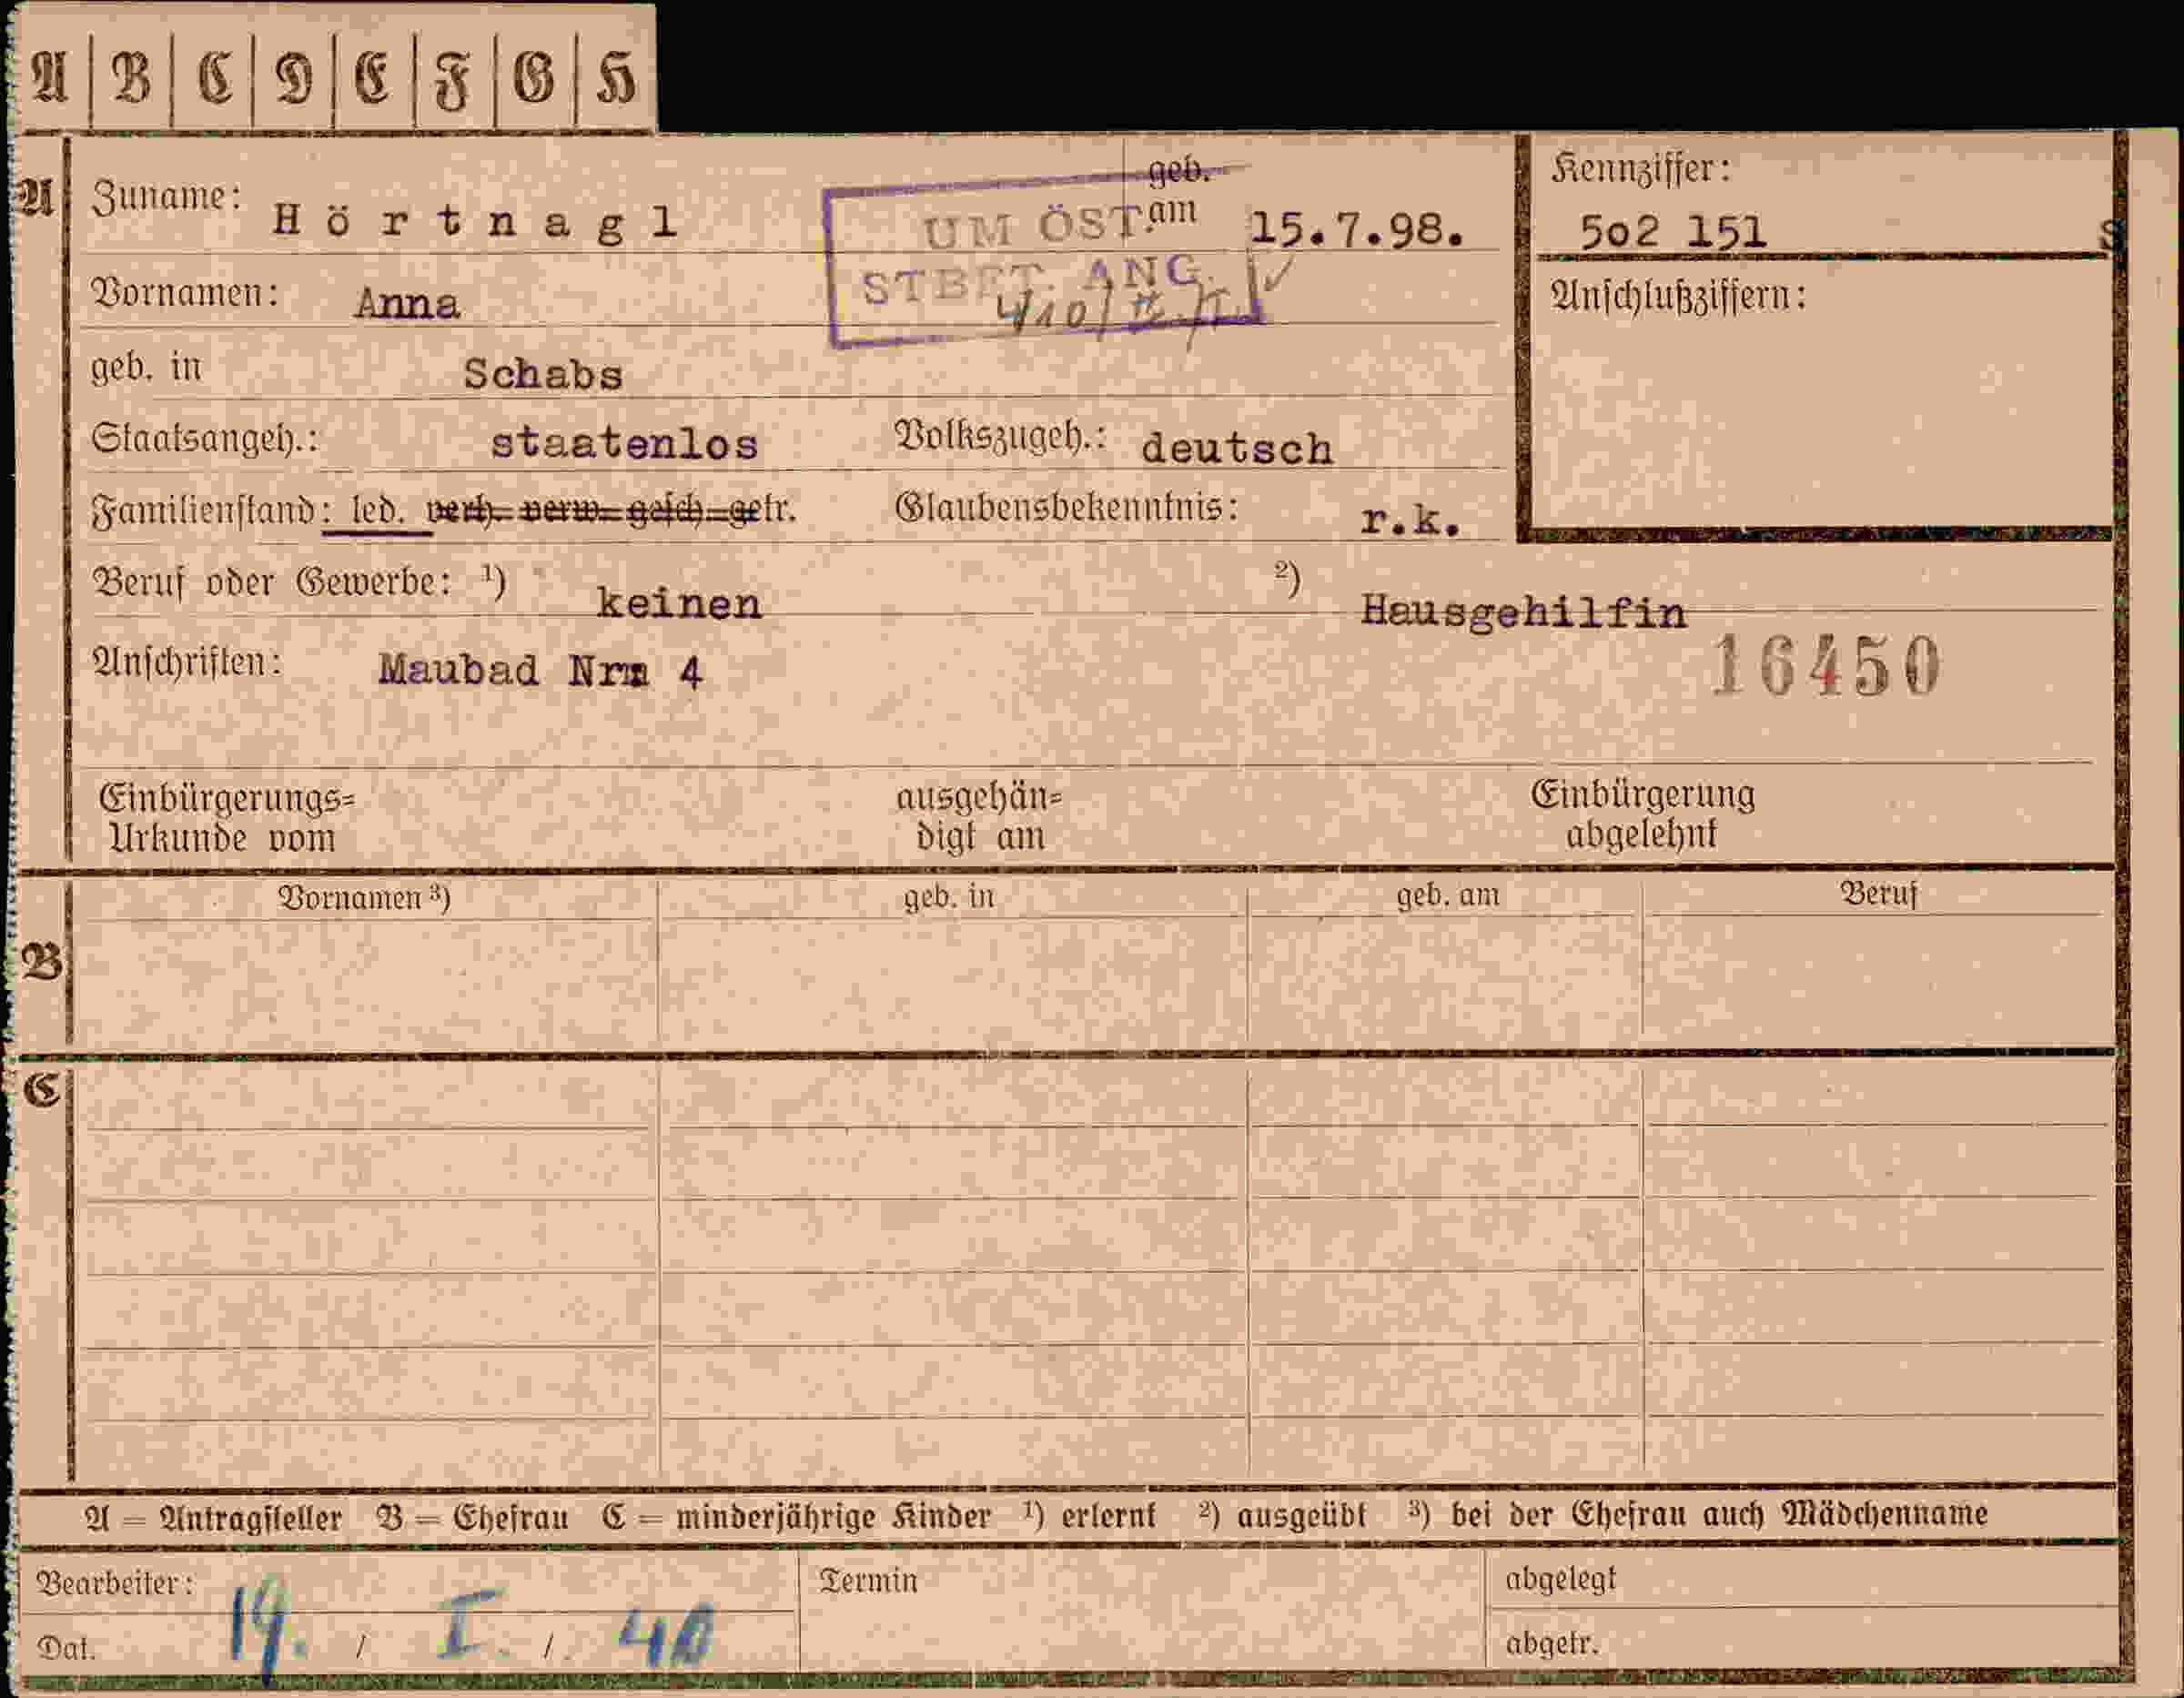 A B C D E F G H
A Zuname: Hörtnagl geb. am 15.7.98.
Kennziffer:
502 151 S
UM ÖST.
STBFT. ANG.
Vornamen: Anna
Anschlußziffern:
geb. in Schabs
Staatsangeh.: staatenlos Volkszugeh.: deutsch
Familienstand: led. verh. verw. gesch. getr. Glaubensbekenntnis: r.k.
Beruf oder Gewerbe: 1) keinen 2) Hausgehilfin
Anschriften: Maubad Nr. 4
16450
Einbürgerungs= ausgehän= Einbürgerung
Urkunde vom digt am abgelehnt
Vornamen 3) geb. in geb. am Beruf
B
C
A = Antragsteller B = Ehefrau C = minderjährige Kinder 1) erlernt 2) ausgeübt 3) bei der Ehefrau auch Mädchenname
Bearbeiter: Termin abgelegt
Dat. 19. / I. / 40 abgetr.